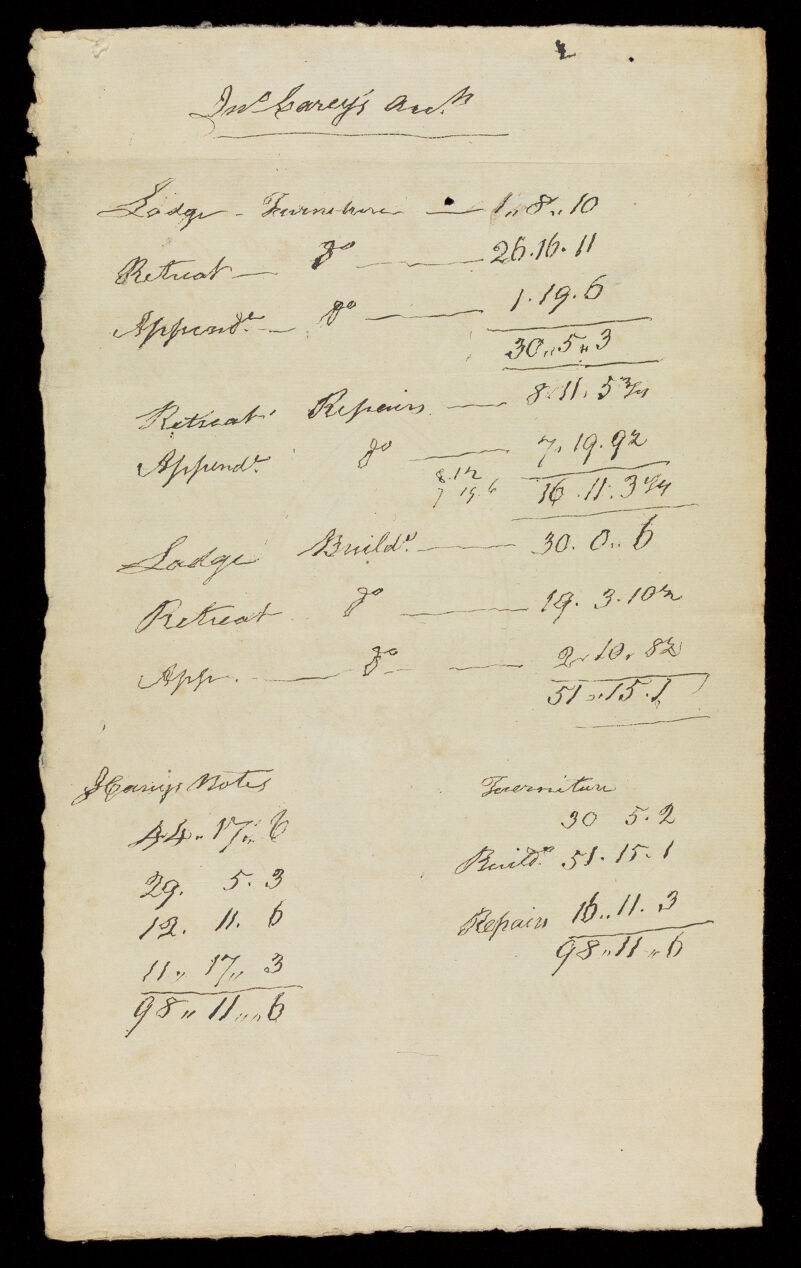 2
Jno Carey's Acc.ts
Lodge - Furniture — 1,, 8,, 10
Retreat — Do — 26. 16. 11
Append.x — Do — 1. 19. 6
30,, 5,, 3
Retreat Repairs — 8. 11. 5 3/4
Append.x Do — 7. 19. 9 1/2
8. 1 1/2
7 19. 6
16. 11. 3 1/4
Lodge Build.s — 30. 0.. 6
Retreat Do — 19. 3. 10 1/2
App. — Do — 2. 10. 8 1/2
51,, 15. 1
Notes
44,, 17,, 6
29. 5. 3
12. 11. 6
11,, 17,, 3
98,, 11,, 6
Furniture
30 5. 2
Build.s 51. 15. 1
Repairs 16.. 11. 3
98,, 11,, 6